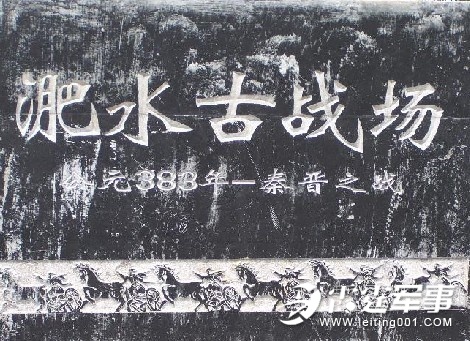 淝水古战场
公元383年—秦晋之战
军事
www.leiting001.com